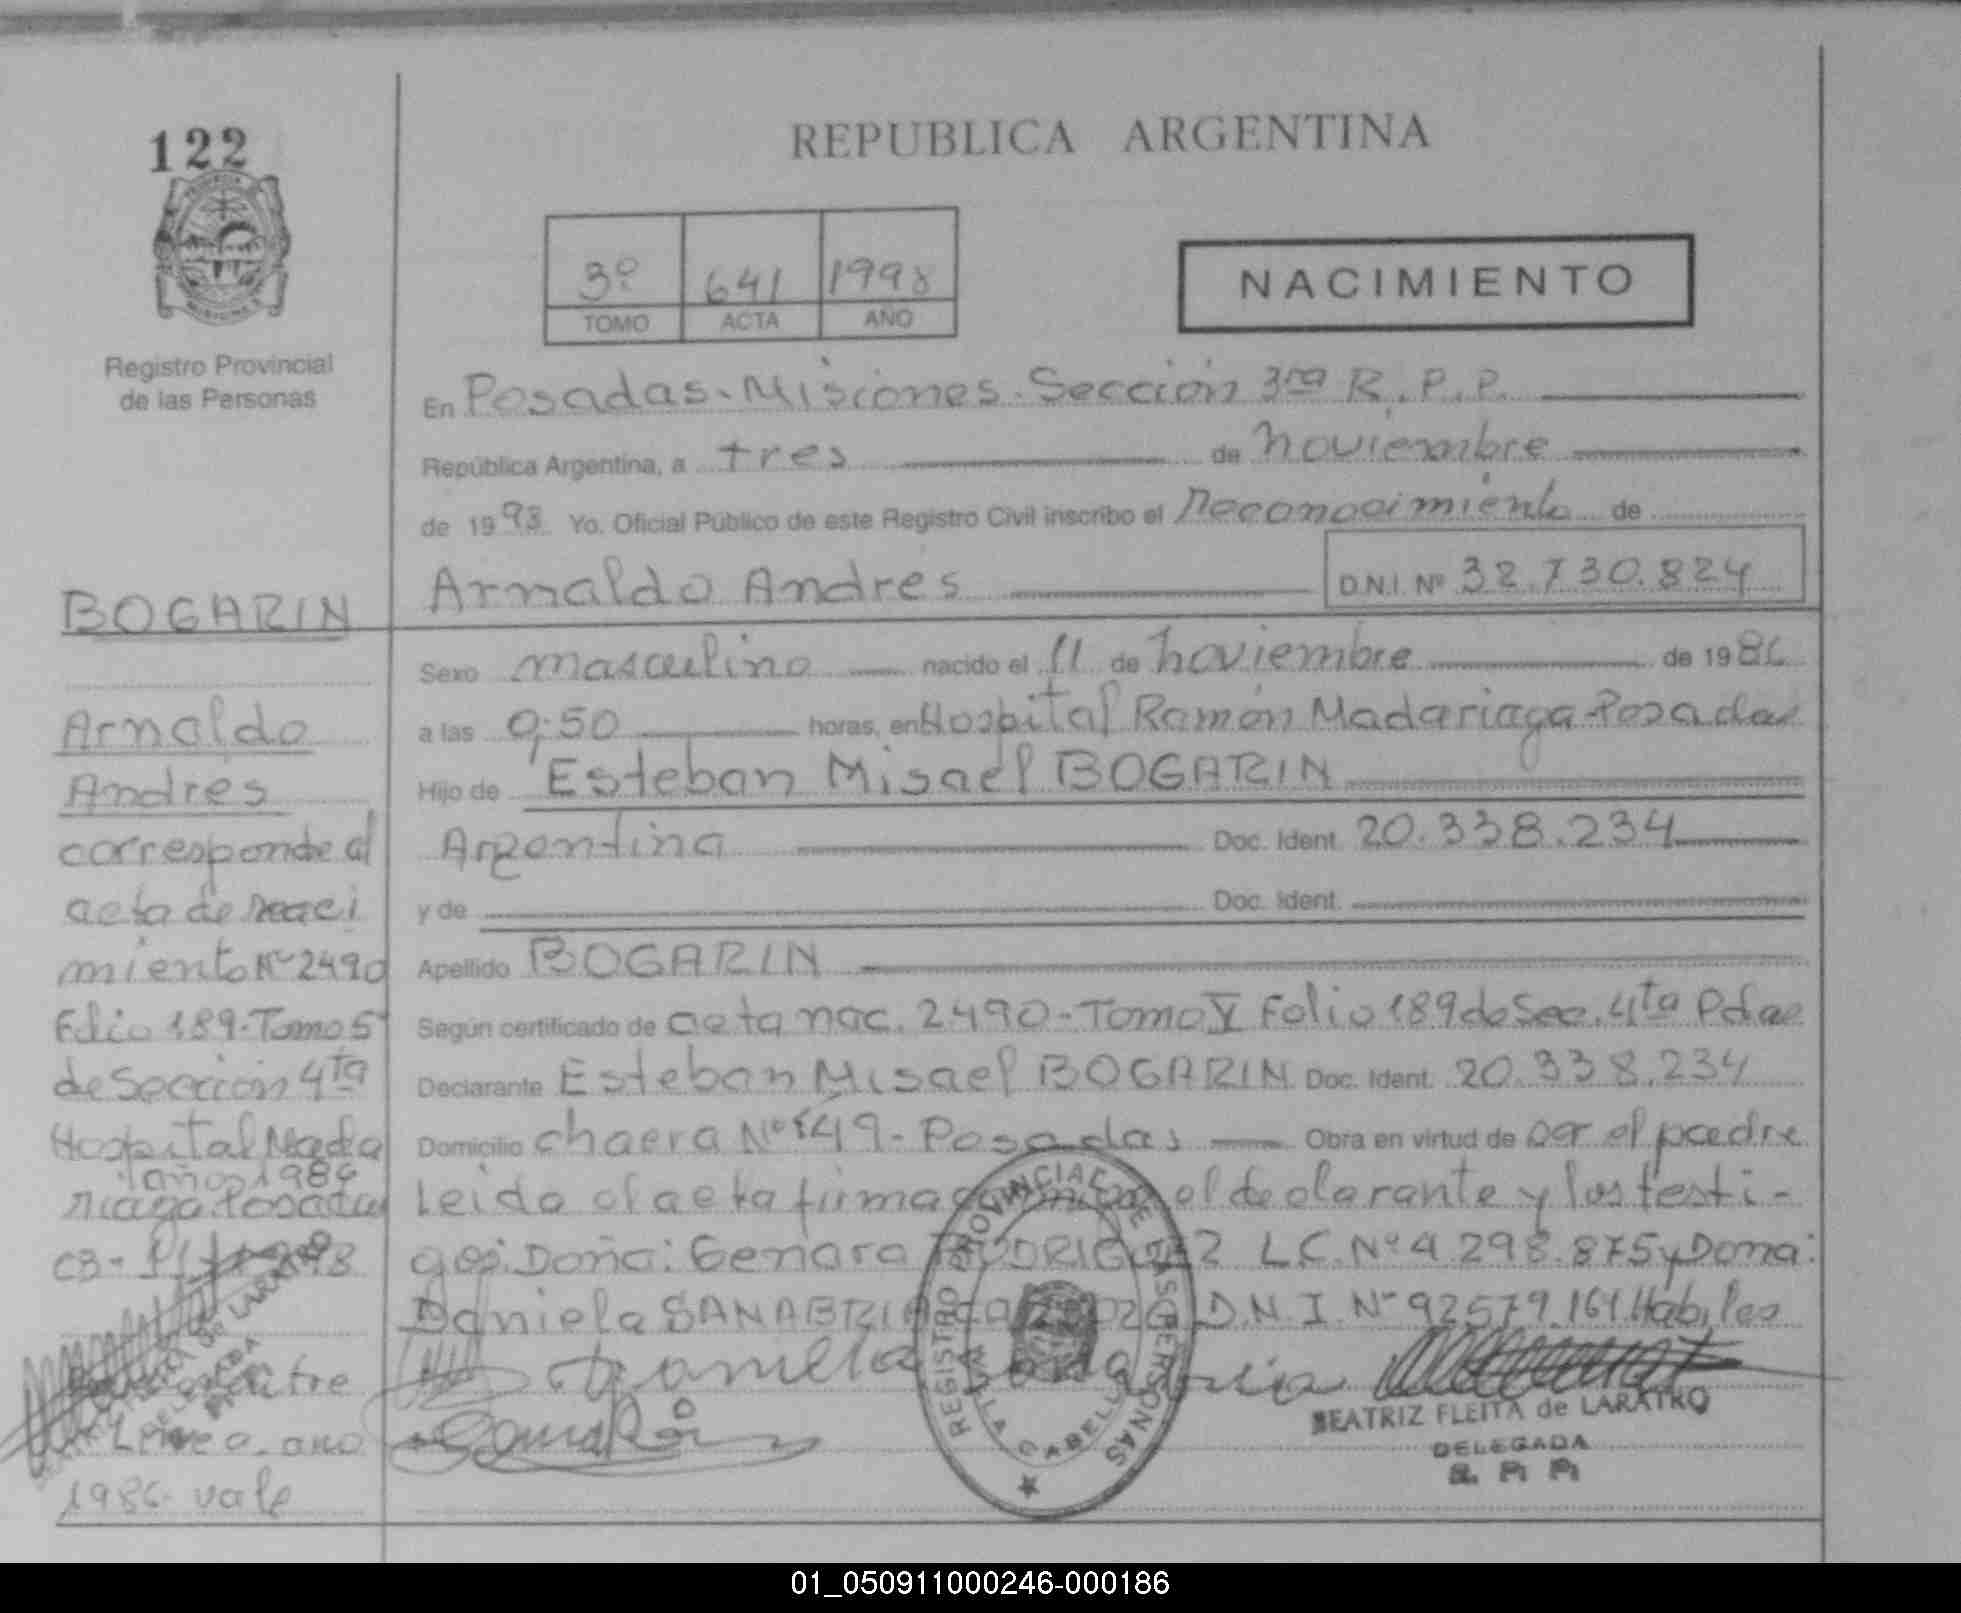 122
REPUBLICA ARGENTINA
3º 641 1998
TOMO ACTA AÑO
NACIMIENTO
Registro Provincial
de las Personas
En Posadas-Misiones. Sección 3ra R.P.P.
República Argentina, a tres de noviembre
de 1998 Yo. Oficial Público de este Registro Civil inscribo el Reconocimiento de
Arnaldo Andres D.N.I. Nº 32.730.824
Sexo masculino nacido el 11 de noviembre de 1986
a las 0,50 horas, en Hospital Ramón Madariaga-Posadas
Hijo de Esteban Misael BOGARIN
Argentina Doc. Ident. 20.338.234
y de Doc. Ident.
Apellido BOGARIN
Según certificado de acta nac. 2490-Tomo V Folio 189 de Sec. 4ta Pdas
Declarante Esteban Misael BOGARIN Doc. Ident. 20.338.234
Domicilio chacra Nº 149-Posadas Obra en virtud de ser el padre
Leida el acta firma el declarante y los testi-
gos: Doña: Genara RODRIGUEZ L.C. Nº 4.298.875 y Doña:
Daniela SANABRIA D.N.I. Nº 92579.161 Hábiles
BOGARIN
Arnaldo
Andrés
corresponde al
acta de naci
miento Nº 2490
Folio 189-Tomo 5º
de Sección 4ta
Hospital Mada
año 1986
riaga Posadas
Línea. año
1986. vale
REGISTRO PROVINCIAL DE LAS PERSONAS
VILLA CABELLO
BEATRIZ FLEITA de LARATRO
DELEGADA
01_050911000246-000186